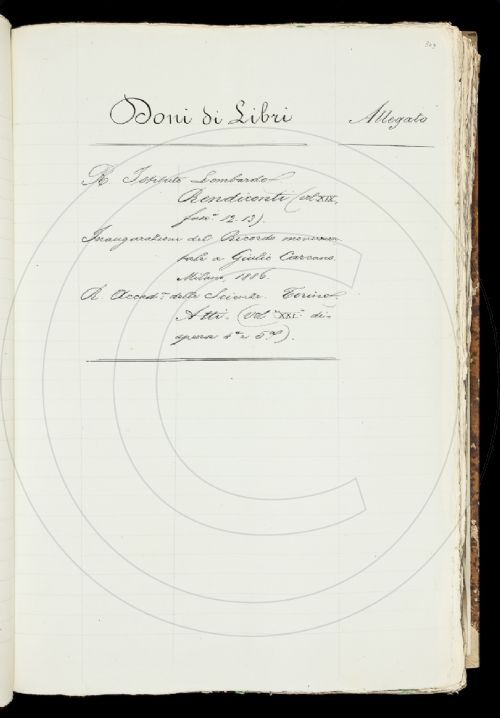 309
Doni di Libri Allegato
R. Istituto Lombardo
Rendiconti (vol XIX,
fasc. 12. 13).
Inaugurazione del Ricordo monumen
tale a Giulio Carcano.
Milano, 1886.
R. Accad. delle Scienze. Torino.
Atti. (vol. XXI. di-
spense 4ª e 5ª).